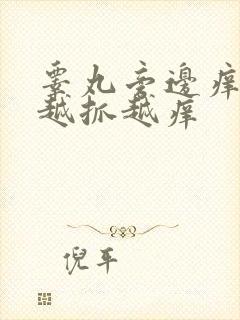 睾丸旁邊痒
越抓越痒
倪平